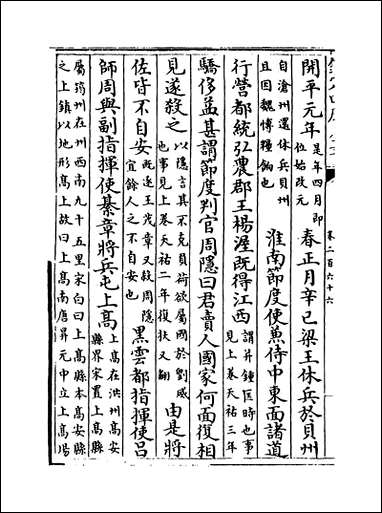 開平元年是年四月即位始改元春正月辛巳梁王休兵於貝州
自滄州還休兵貝州且因魏博糧餉也淮南節度使兼侍中東面諸道
行營都統弘農郡王楊渥既得江西謂并鍾匡時也事見上卷天祐三年
驕侈益甚謂節度判官周隱曰君賣人國家何面復相
見遂殺之以隱言其不克負荷欲屬國於劉威也事見上卷天祐二年復扶又翻由是將
佐皆不自安既逐王茂章又殺周隱宜餘人之不自安也黑雲都指揮使呂
師周與副指揮使綦章將兵屯上高上高在洪州高安縣界宋置上高縣
屬筠州在州西南九十五里宋白曰上高縣本高安縣之上鎮以地形高上故曰上高南唐昇元中立上高場
卷二百六十六